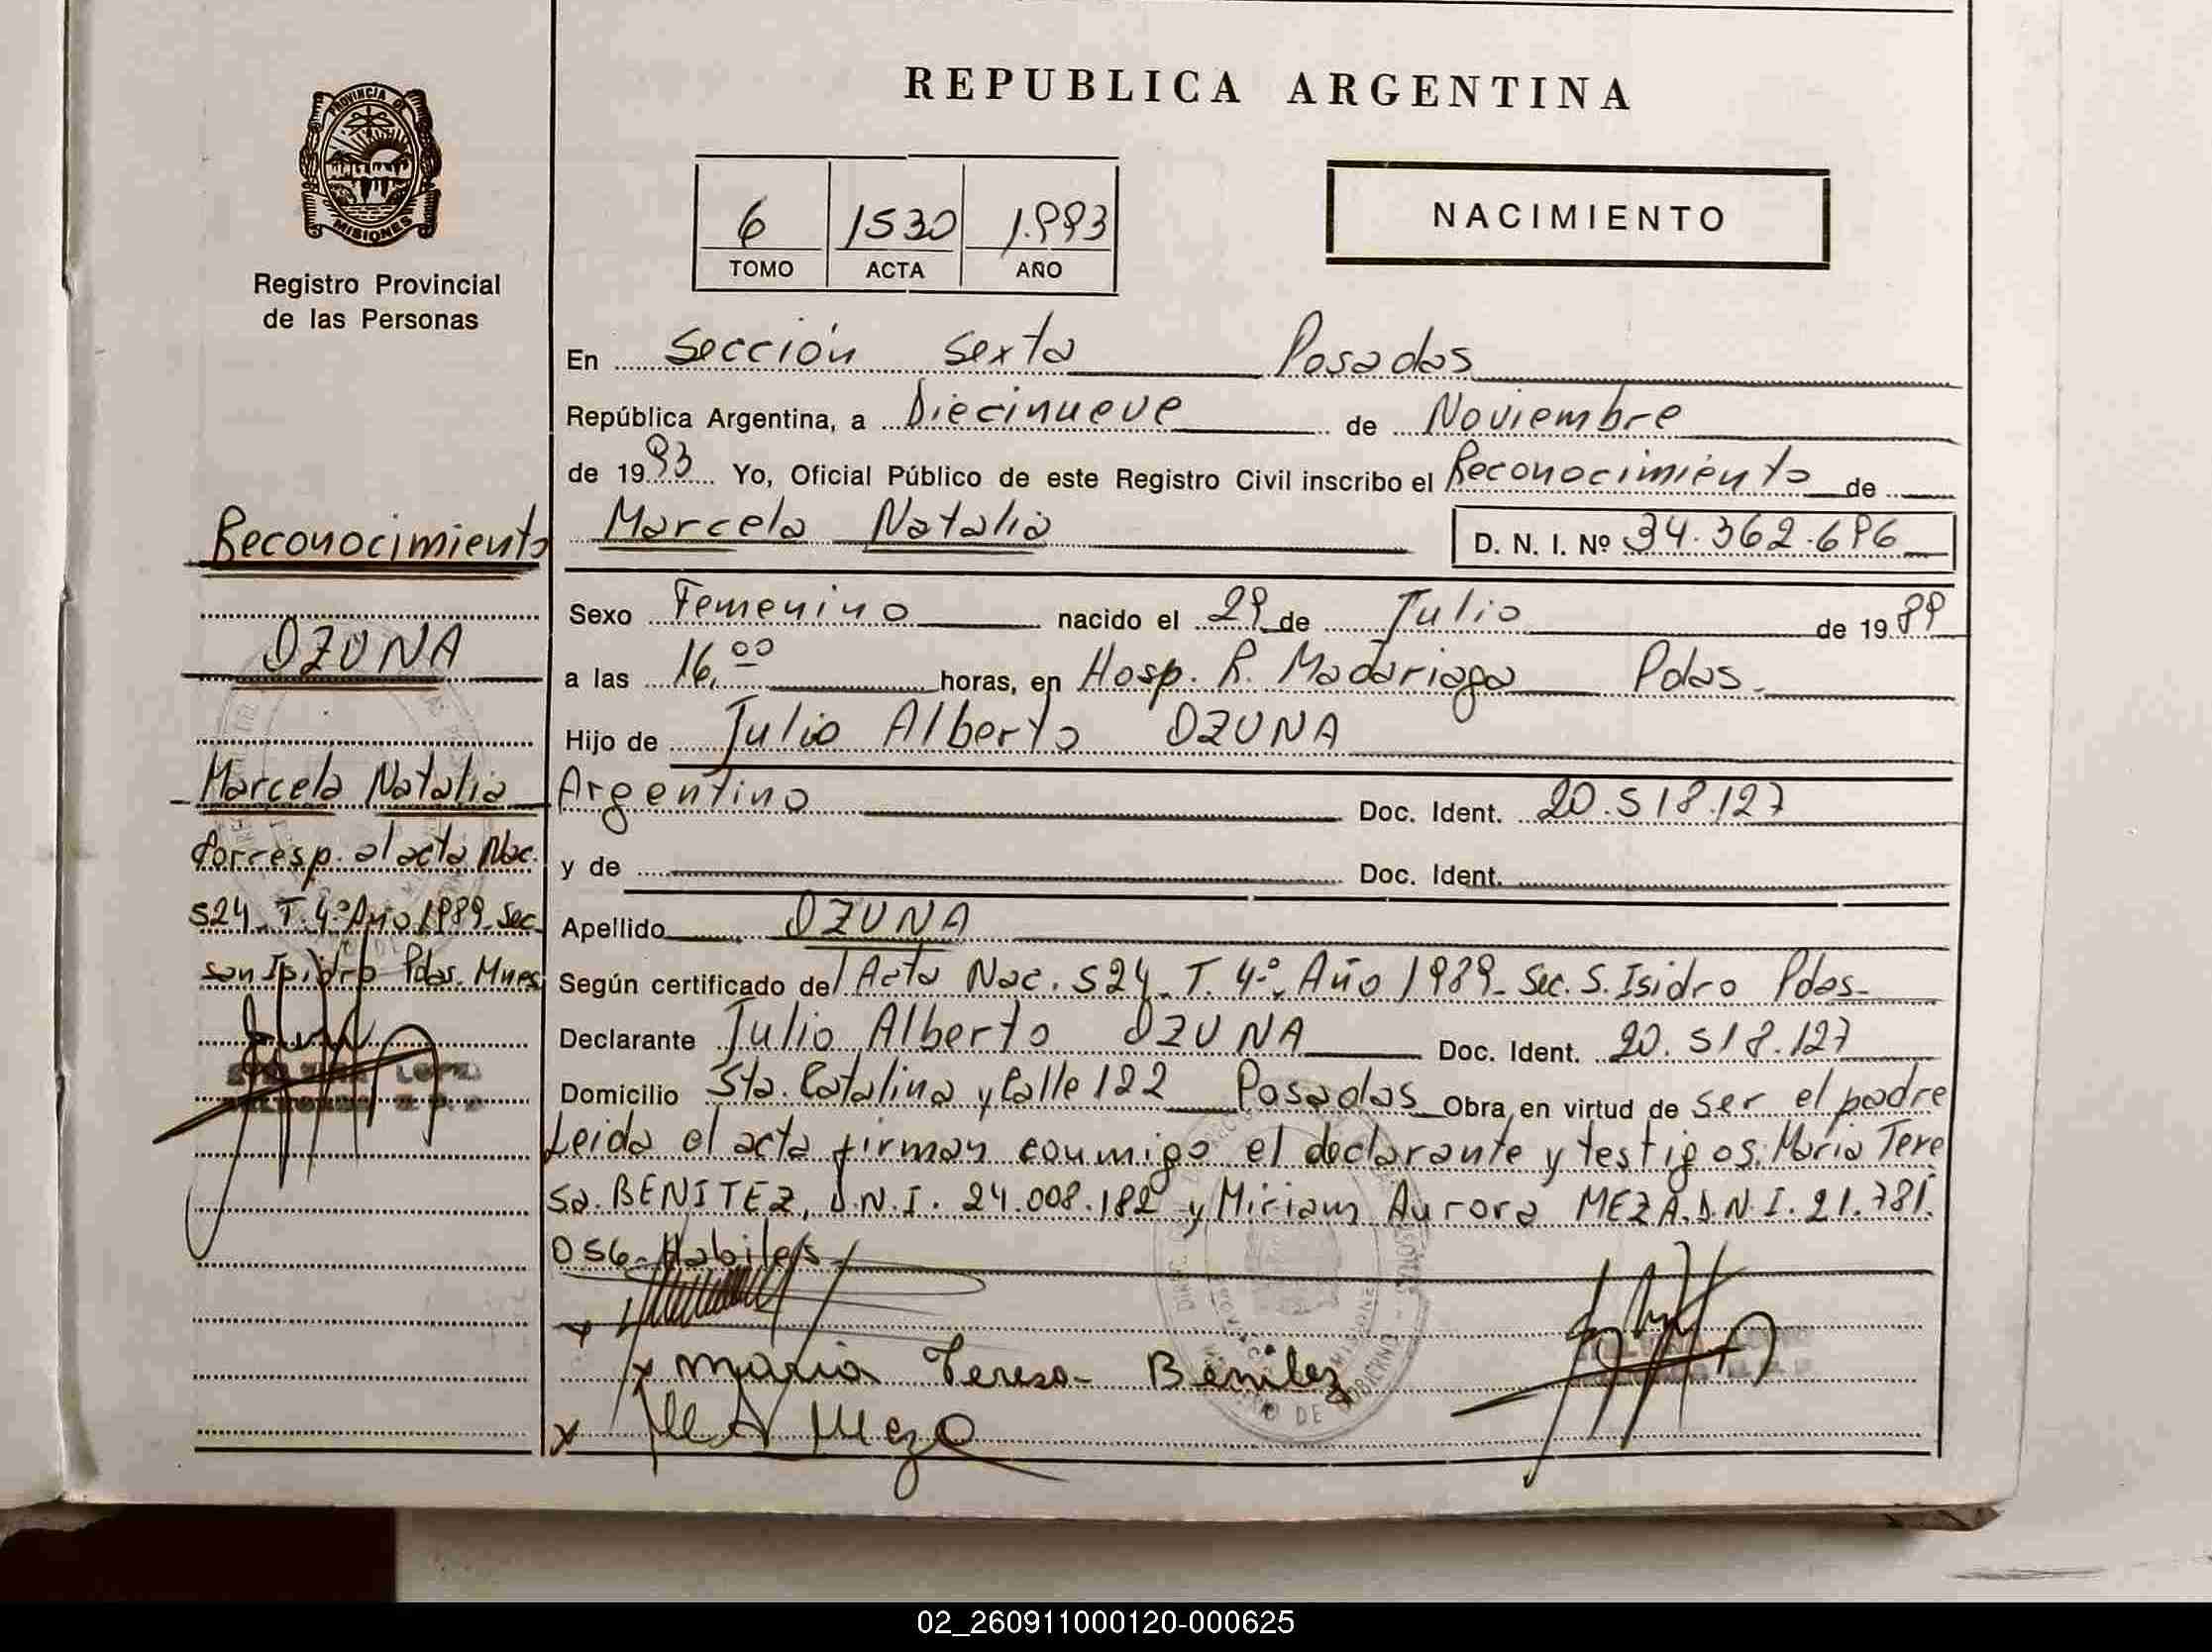 REPUBLICA ARGENTINA
PROVINCIA DE
MISIONES
Registro Provincial
de las Personas
6 1530 1.993
TOMO ACTA AÑO
NACIMIENTO
En Sección Sexta Posadas
República Argentina, a Diecinueve de Noviembre
de 1993 Yo, Oficial Público de este Registro Civil inscribo el Reconocimiento de
Marcela Natalia D. N. I. Nº 34.362.696
Sexo Femenino nacido el 29 de Julio de 1989
a las 16,00 horas, en Hosp. R. Madariaga Pdas.
Hijo de Julio Alberto OZUNA
Argentino Doc. Ident. 20.518.127
y de Doc. Ident.
Apellido OZUNA
Según certificado del Acta Nac. 524 T. 4º Año 1989 Sec. S. Isidro Pdas
Declarante Julio Alberto OZUNA Doc. Ident. 20.518.127
Domicilio Sta. Catalina y Calle 122 Posadas Obra, en virtud de ser el padre
Leida el acta firman conmigo el declarante y testigos: Maria Tere
sa. BENITEZ, D.N.I. 24.008.182 y Miriam Aurora MEZA. D.N.I. 21.781.
056 Habiles
x
x Maria Teresa Benitez
x M A Meza
Reconocimiento
OZUNA
Marcela Natalia
Corresp. al acta Nac.
524 T. 4º Año 1989 Sec.
san Isidro Pdas. Mnes
LOPEZ
02_260911000120-000625